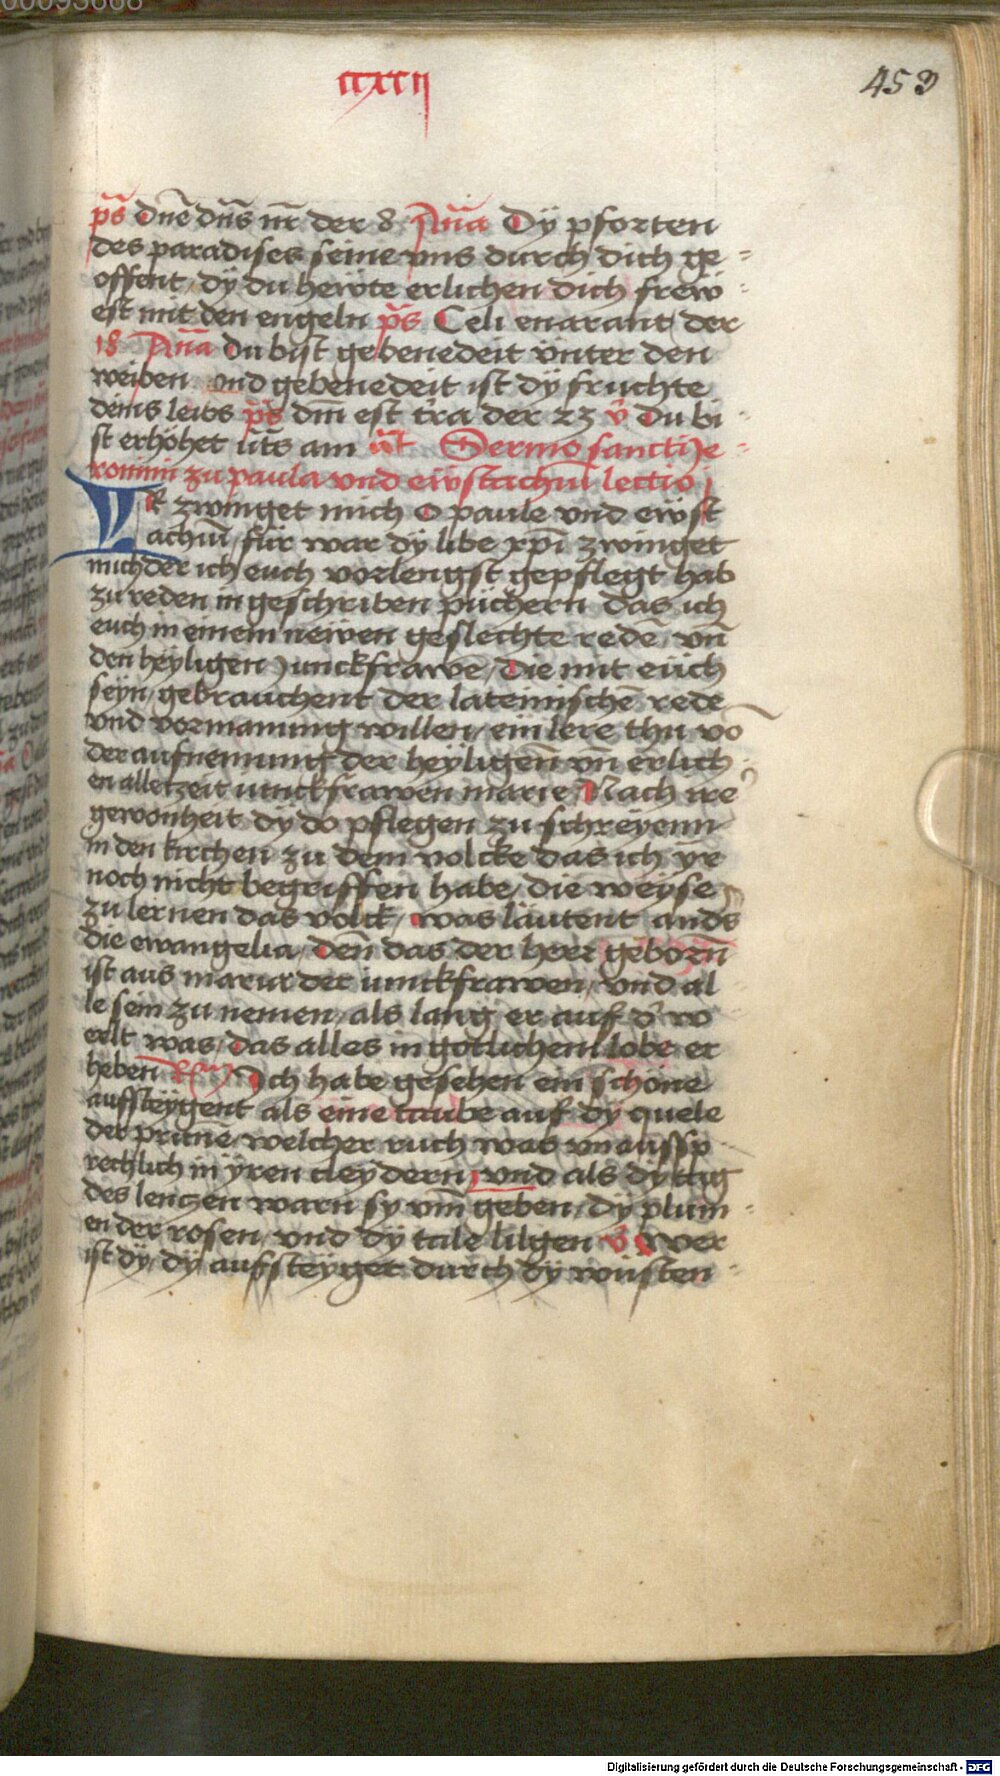 00093668
ccxcij
453
ps̄ Dn̄e dn̄s nr̄ der 8 An̄a Dÿ pforten
des paradises seine vns durch dich ge=
offent, dÿ du hewte erlichen dich frew=
est mit den engeln ps̄ Celi enarant der
18 An̄a Du bist gebenedeit vnter den
weiben vnd gebenedeit ist dÿ fruchte
deins leibs ps̄ dm̄ est t̄ra der 23 v̄ Du bi=
st erhöhet vt̄s am vt̄ Sermo sancti Je=
ronimi zu paula vnd eüstachiu̅ lectio j
IR zwinget mich O paule vnd eüst
achiu̅, für war dÿ libe xp̄i zwinget
mich der ich euch vorlengst gepflegt hab
zu reden in geschriben püchern das ich
euch in einem newen geslechte rede̅ vn̄
den heyligen Junckfrawe̅, Die mit euch
seyn, gebrauchent der lateinische̅ rede
vnd vormanung willen, ein lere thu vo̅
der aufnemung der heyligen̄ vn̄ erlich=
en alletzeit iunckfrawen marie, Nach ire
gewonheit dÿ do pflegen zu schreyenn
in den kirchen zu dem volcke das ich ÿe
noch nicht begriffen habe, die weyse
zu lernen das volck, was läutent and's
die ewangelia, den̄ das der herr geborn̄
ist aus maria der iunckfrawen, vnd al
le sein zu nemen, als lang er auf d' w
erlt was, das alles in gotlichem lobe er
heben Rm̄ Ich habe gesehen ein schöne
auffsteygent als eine taube auf dÿ quele
der prune̅, welcher ruch was vnaussp=
rechlich in ÿren cleydern, vnd als dÿ tag
des lenczen warn sy vm̄ geben, dÿ plum=
en der rosen, vnd dÿ tale lilgen v̄ Wer
ist dÿ, dÿ aufsteyget durch dÿ wüsten=
Digitalisierung gefördert durch die Deutsche Forschungsgemeinschaft - DFG